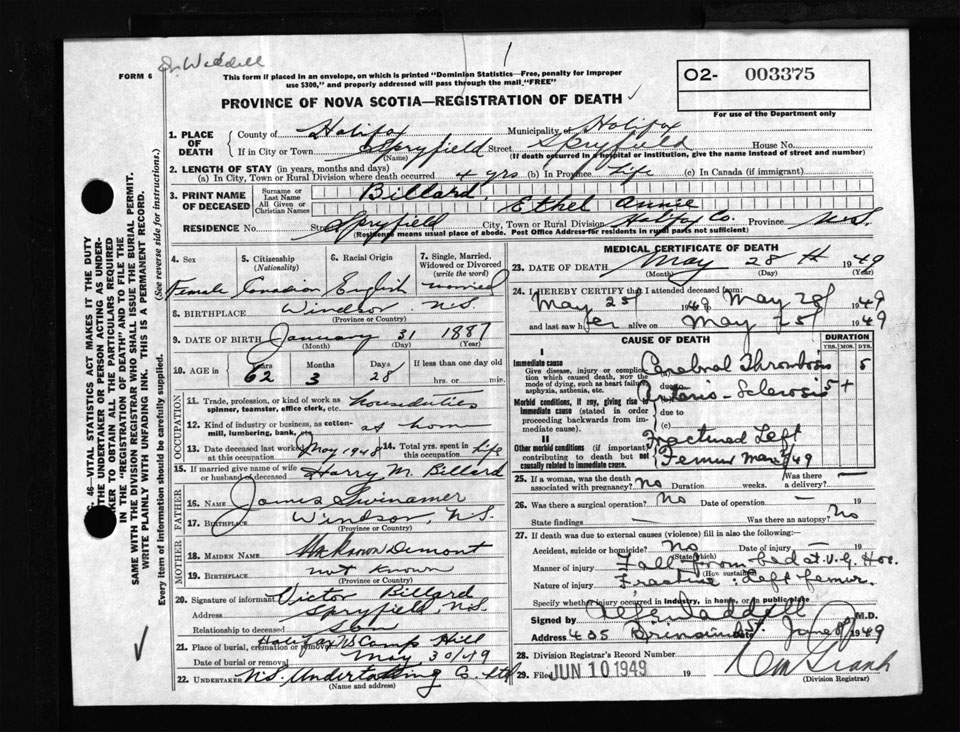 Dr. Weddell
FORM 6
This form if placed in an envelope, on which is printed "Dominion Statistics—Free, penalty for improper
use $300," and properly addressed will pass through the mail "FREE"
O2- 003375
For use of the Department only
PROVINCE OF NOVA SCOTIA—REGISTRATION OF DEATH
1. PLACE OF DEATH
County of Halifax Municipality of Halifax
If in City or Town Spryfield Street Spryfield House No.
(Name) (If death occurred in a hospital or institution, give the name instead of street and number)
2. LENGTH OF STAY (in years, months and days)
(a) In City, Town or Rural Division where death occurred 4 yrs (b) In Province Life (c) In Canada (if immigrant)
3. PRINT NAME OF DECEASED
Surname or Last Name Billard
All Given or Christian Names Ethel Annie
RESIDENCE No. Street Spryfield City, Town or Rural Division Halifax Co. Province N.S.
(Residents means usual place of abode. Post Office Address for residents in rural parts not sufficient)
4. Sex Female
5. Citizenship (Nationality) Canadian
6. Racial Origin English
7. Single, Married, Widowed or Divorced (write the word) married
8. BIRTHPLACE Windsor N.S.
(Province or Country)
9. DATE OF BIRTH January 31 1887
(Month) (Day) (Year)
10. AGE Years Months Days If less than one day old
62 3 28 hrs. or min.
OCCUPATION
11. Trade, profession, or kind of work as spinner, teamster, office clerk, etc. houseduties
12. Kind of industry or business, as cotten-mill, lumbering, bank, etc. at home
13. Date deceased last worked at this occupation May 1948
14. Total yrs. spent in this occupation Life
15. If married give name of wife or husband of deceased Harry M. Billard
FATHER
16. Name James Swinamer
17. Birthplace Windsor, N.S.
(Province or Country)
MOTHER
18. MAIDEN NAME Unknown Demont
19. BIRTHPLACE not known
(Province or Country)
20. Signature of informant Victor Billard
Address Spryfield N.S.
Relationship to deceased Son
21. Place of burial, cremation or removal Halifax NS Camp Hill
Date of burial or removal May 30/49
22. UNDERTAKER N.S. Undertaking Co. Ltd
(Name and address)
MEDICAL CERTIFICATE OF DEATH
23. DATE OF DEATH May 28th 1949
(Month) (Day)
24. I HEREBY CERTIFY that I attended deceased from:
May 25 1949 May 28 1949
and last saw her alive on May 25 1949
CAUSE OF DEATH
DURATION
YRS. MOS. DYS.
I
Immediate cause
Give disease, injury or complication which caused death, NOT the mode of dying, such as heart failure, asphyxia, asthenia, etc.
Cerebral Thrombosis 5
due to
Arterio-Sclerosis 5+
Morbid conditions, if any, giving rise to immediate cause (stated in order proceeding backwards from immediate cause).
due to
(c)
II
Other morbid conditions (if important) contributing to death but not causally related to immediate cause.
Fractured Left
Femur Mar/49
25. If a woman, was the death associated with pregnancy? No Duration weeks. Was there a delivery? —
26. Was there a surgical operation? No Date of operation — 19
State findings — Was there an autopsy? No
27. If death was due to external causes (violence) fill in also the following:—
Accident, suicide or homicide? No Date of injury — 19
(State which)
Manner of injury Fall from bed at V.G. Hos.
(How sustained)
Nature of injury Fracture: Left femur.
Specify whether injury occurred in industry, in home, or in public place
Signed by Waddell M.D.
Address 405 June 1949
28. Division Registrar's Record Number
29. Filed JUN 10 1949 19
(Division Registrar)
C. 46—VITAL STATISTICS ACT MAKES IT THE DUTY
THE UNDERTAKER OR PERSON ACTING AS UNDER-
KER TO OBTAIN ALL THE PARTICULARS REQUIRED
IN THE "REGISTRATION OF DEATH" AND TO FILE THE
SAME WITH THE DIVISION REGISTRAR WHO SHALL ISSUE THE BURIAL PERMIT.
WRITE PLAINLY WITH UNFADING INK. THIS IS A PERMANENT RECORD.
Every item of information should be carefully supplied. (See reverse side for instructions.)